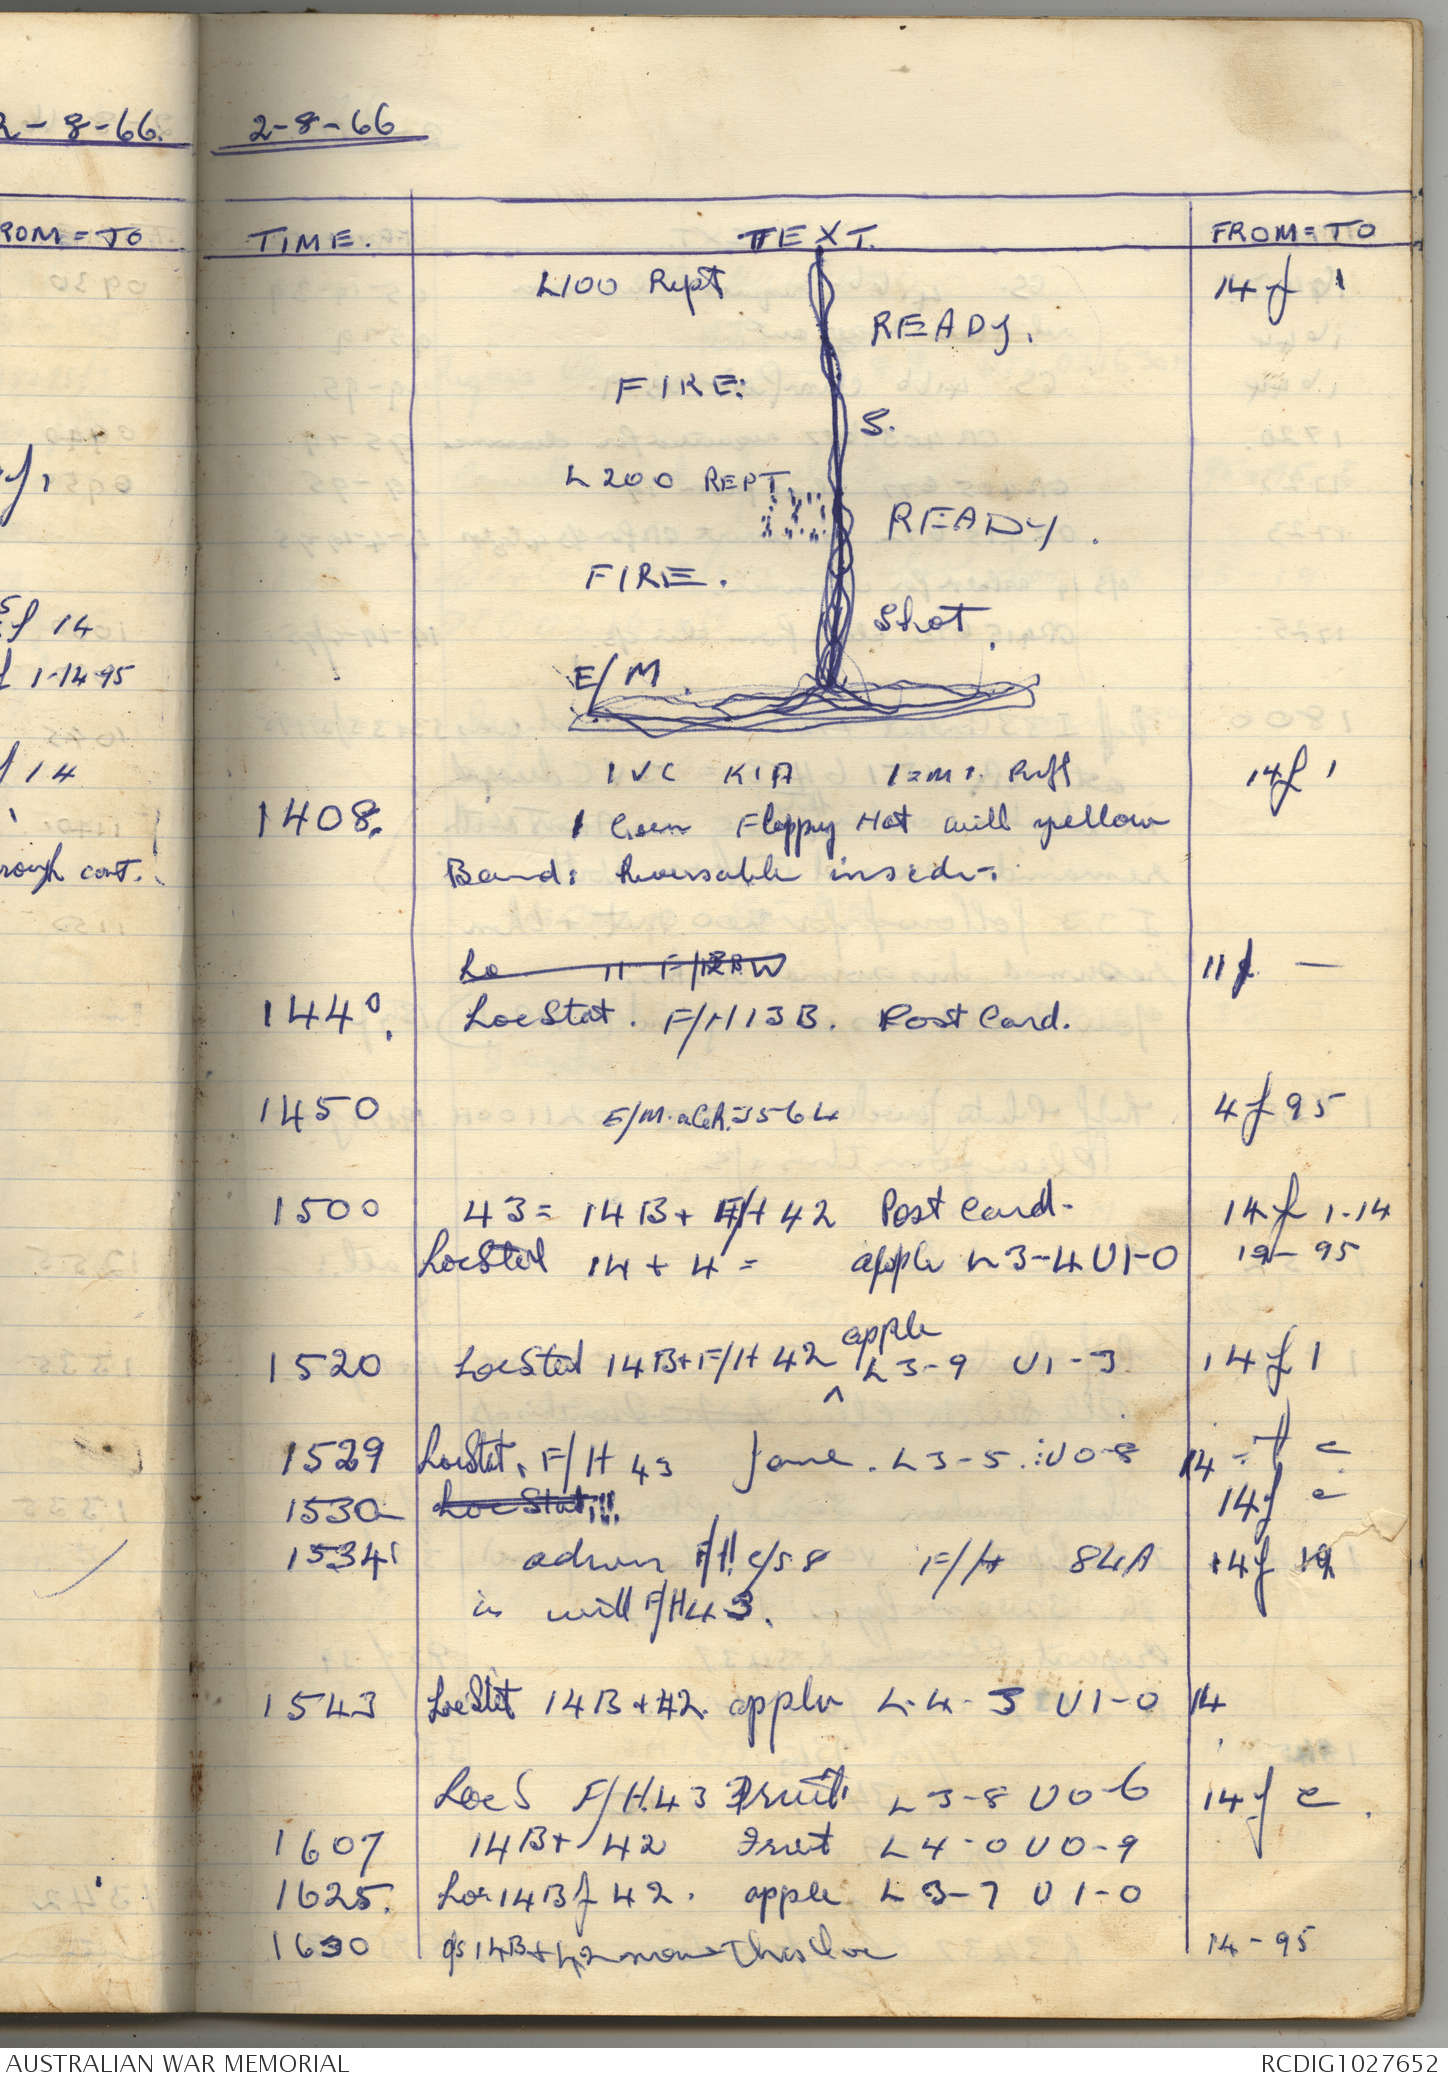 2-8-66.
2-8-66
ROM = TO
TIME. TEXT. FROM = TO
L100 Rept 14 f 1
READY.
FIRE:
S.
L200 REPT
READY.
FIRE.
5
f 14
Shot.
1-14-95
E/M.
f 14
1 VC KIA 14 f 1
1408. 1 Green Floppy Hat with yellow
rough cont.
Band: Reversable inside.
Lo 11 F/ 11 f —
1440. LocStat. F/H 13B. Post Card.
1450 E/M. 3564 4 f 95
1500 43 = 14B + F/H 42 Post Card - 14 f 1-14
LocStat 14 + 4 = apple L3-4 U1-0 19-95
apple
1520 LocStat 14B + F/H 42 ^ L3-9 U1-3 14 f 1
1529 LocStat. F/H 43 Jane. L3-5. U0-8 14 - f c
1530 LocStat. 14 f c
1534 admin F/H c/s 8 F/H 84A 14 f 19
is with F/H 43.
1543 LocStat 14B + 42. apple L-4-3 U1-0 14
LocS F/H.43 Fruit L3-8 U0-6 14 f c.
1607 14B + 42 Fruit L4-0 U0-9
1625. Loc 14B f 42. apple L3-7 U1-0
1630 14B + 42 now This loc 14-95
AUSTRALIAN WAR MEMORIAL RCDIG1027652